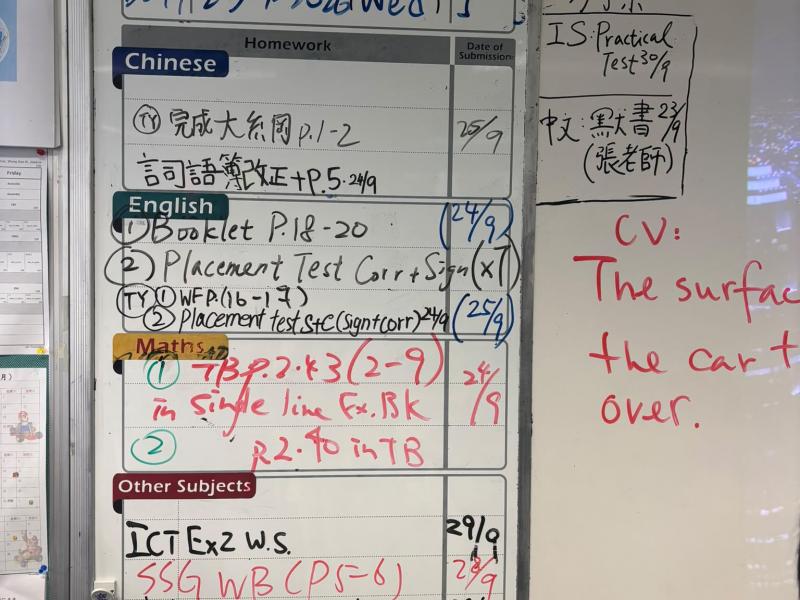 Wed
Homework
Date of Submission
Chinese
TY 完成大綱 p.1-2 25/9
詞語簿改正+P.5. 24/9
English
① Booklet P.18-20 (24/9)
② Placement Test Corr+Sign (XT)
TY ① WFP.(16-17)
② Placement test S+C (sign+corr) 24/9 (25/9)
Maths
① TB p.2.43 (2-9) 24/9
in Single line Ex.BK
② p2.40 in TB
Other Subjects
ICT Ex2 W.S. 29/9
SSG WB (P5-6)
IS: Practical
Test 30/9
中文: 默書 23/9
(張老師)
CV:
The surfac
the car t
over.
Friday